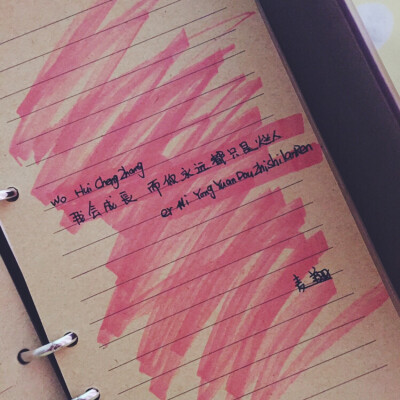 Wo Hui Cheng Zhang
我会成長 而你永远都只是烂人
er Ni Yong Yuan Dou Zhi shi lan Ren
麦